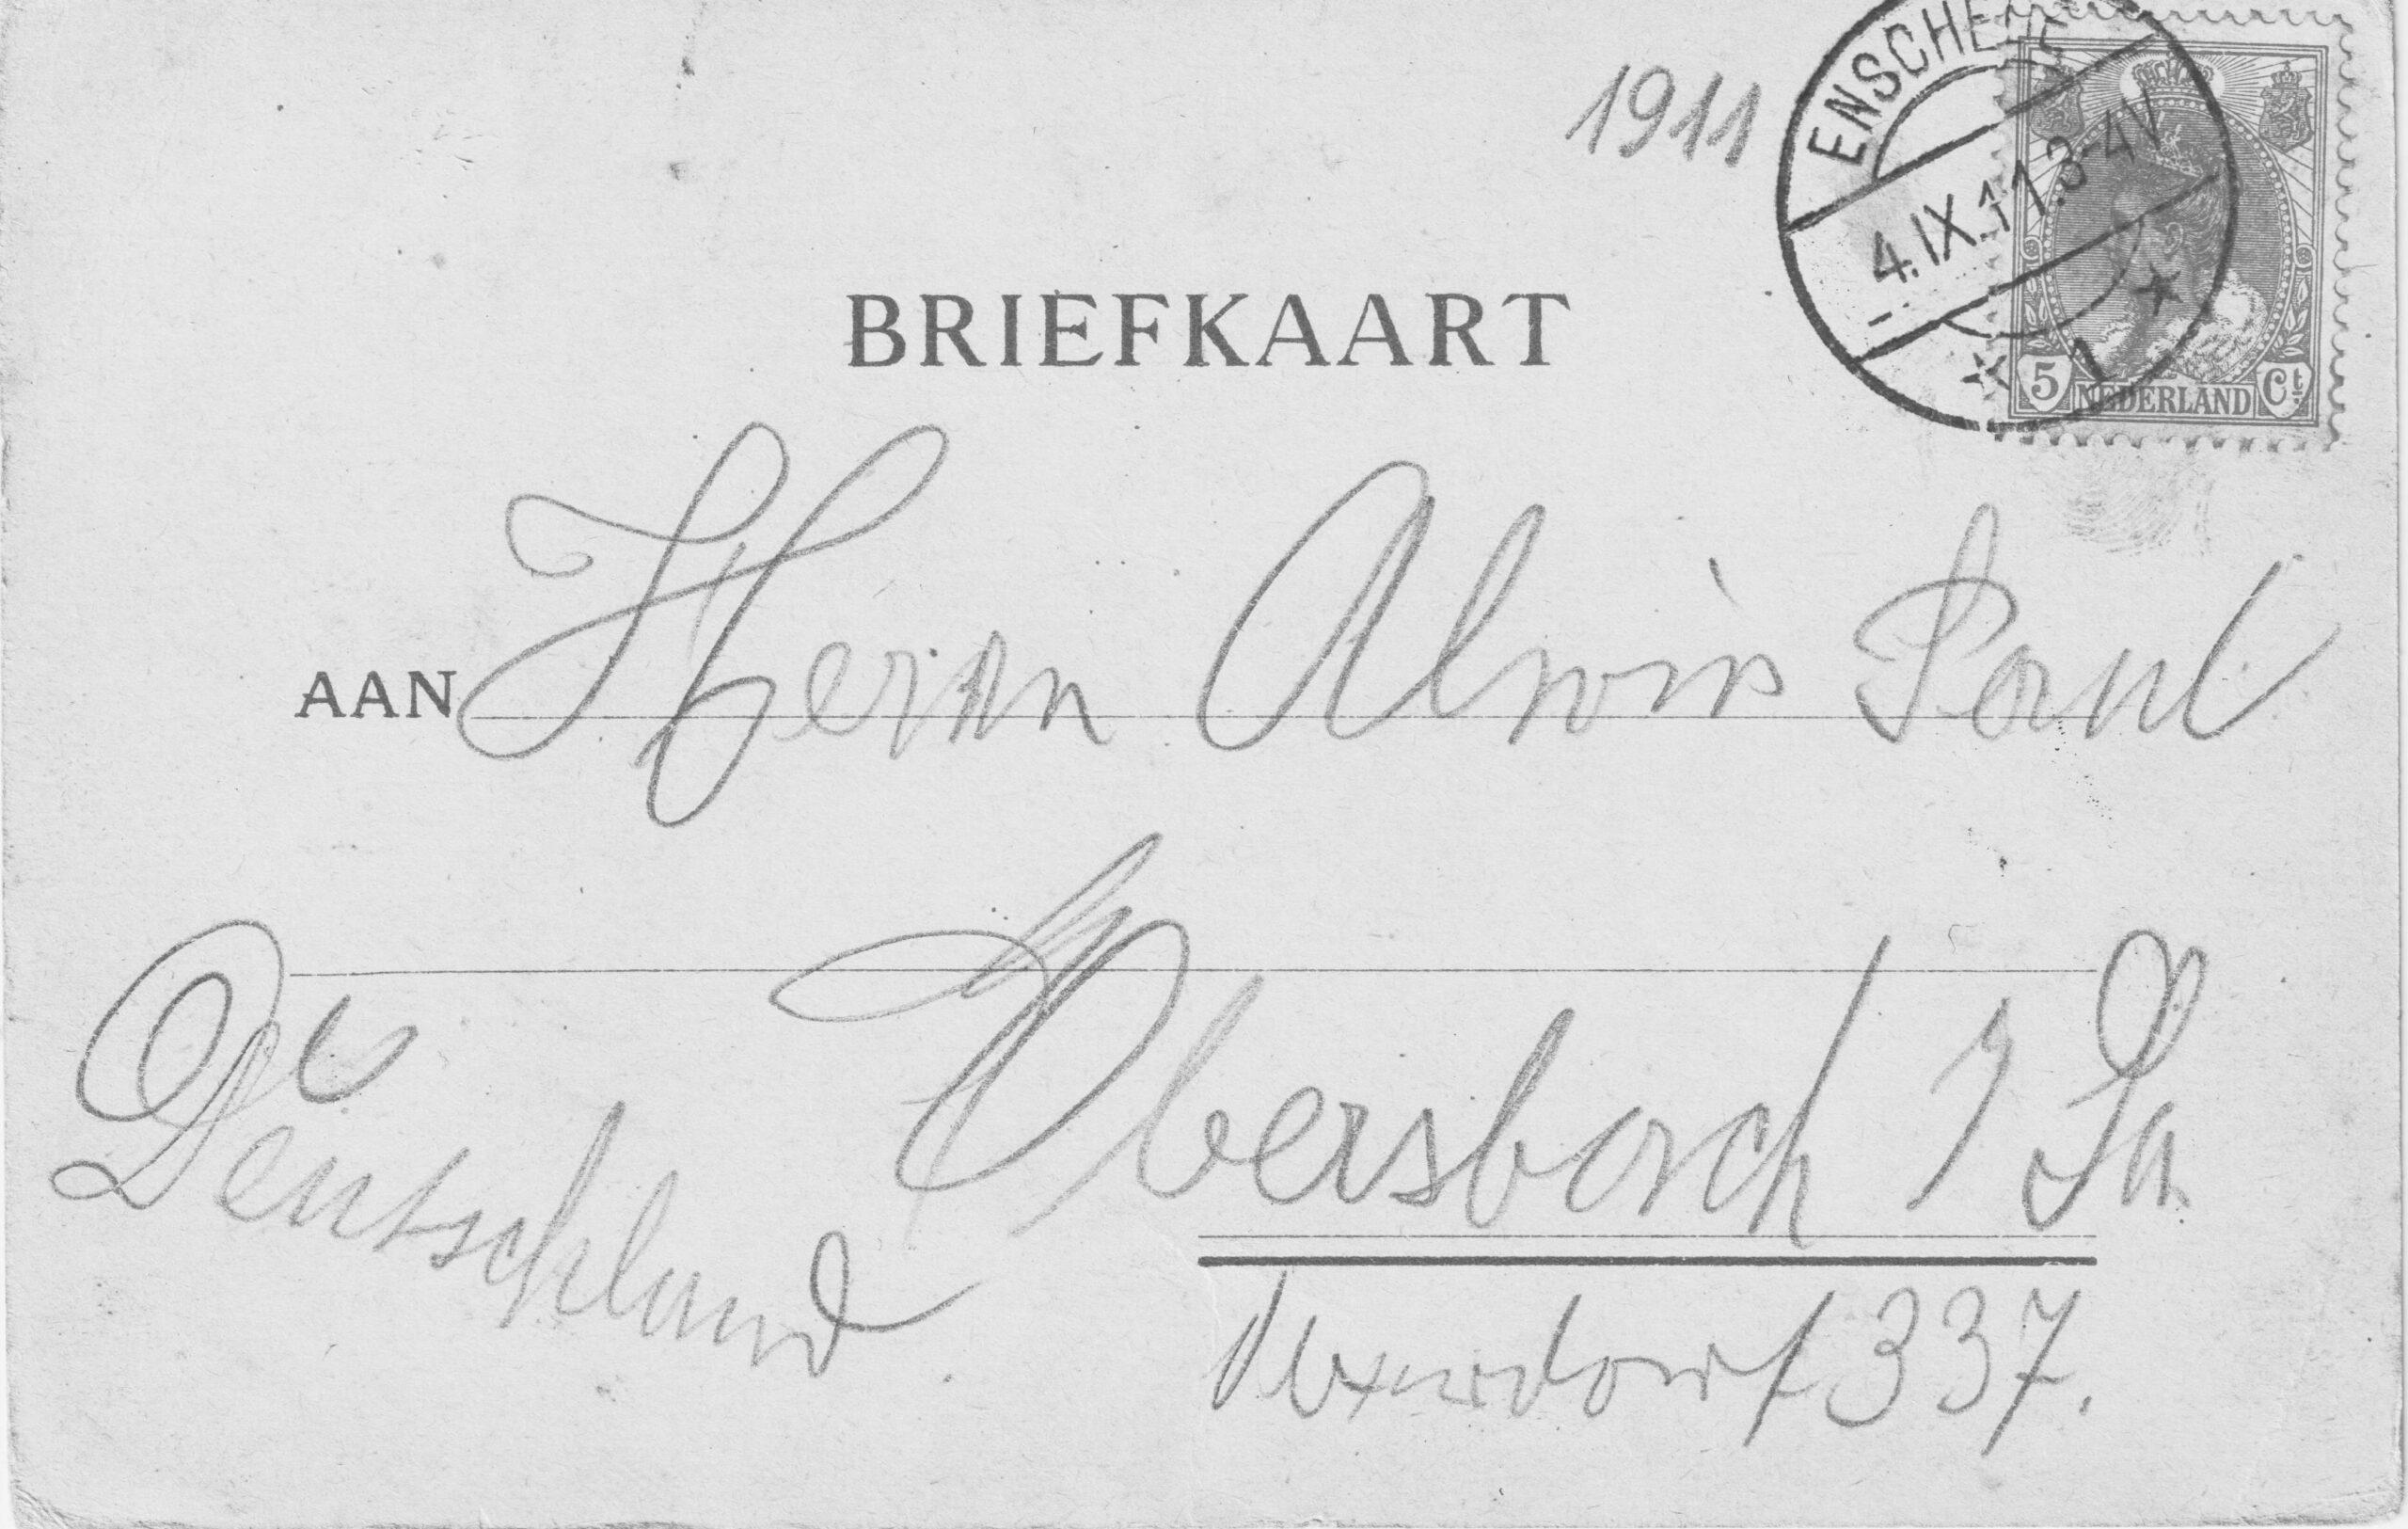 1911
ENSCHEDE
4.IX.11.3-4V
1
5 NEDERLAND Ct
BRIEFKAART
AAN Herrn Alwin Paul
Obersbach i Sa
Deutschland
337.